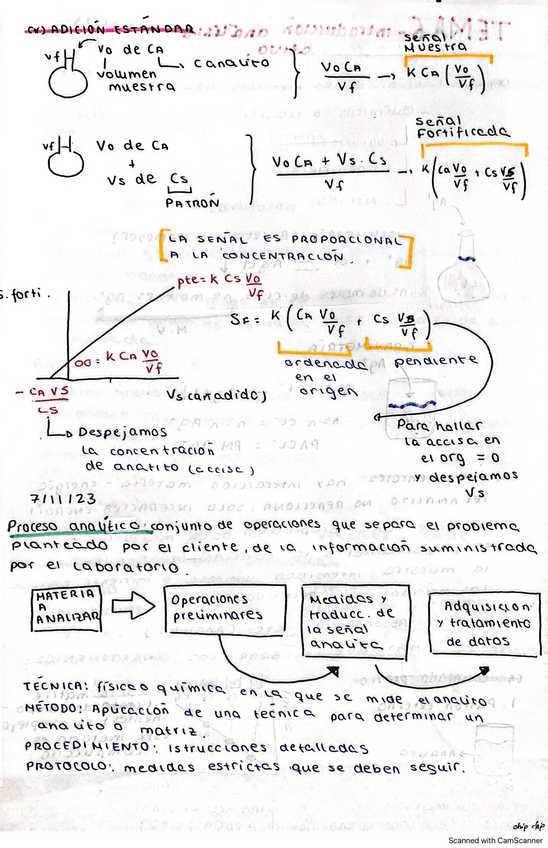 α) ADICIÓN ESTÁNDAR
Vf Vo de CA
canalito
volumen
muestra
Vo CA / Vf
señal
Muestra
K CA (Vo / Vf)
Vf Vo de CA
+
Vs de Cs
PATRÓN
Vo CA + Vs · Cs / Vf
señal
Fortificada
K (CA Vo / Vf + Cs Vs / Vf)
LA SEÑAL ES PROPORCIONAL
A LA CONCENTRACIÓN.
S. forti.
pte = K Cs Vo / Vf
OO = K CA Vo / Vf
- CA VS / CS
Vs (añadido)
SF = K (CA Vo / Vf + Cs Vs / Vf)
ordenada
en el
origen
pendiente
Despejamos
la concentración
de analito (accisa)
Para hallar
la accisa en
el org = 0
y despejamos
Vs
7/11/23
Proceso analítico: conjunto de operaciones que separa el problema
planteado por el cliente, de la información suministrada
por el laboratorio.
MATERIA
A
ANALIZAR
Operaciones
preliminares
Medidas y
traducc. de
la señal
analítica
Adquisición
y tratamiento
de datos
TÉCNICA: físico o química en la que se mide el analito
MÉTODO: Aplicación de una técnica para determinar un
analito o matriz.
PROCEDIMIENTO: istrucciones detalladas
PROTOCOLO: medidas estrictas que se deben seguir.
chip chip
Scanned with CamScanner